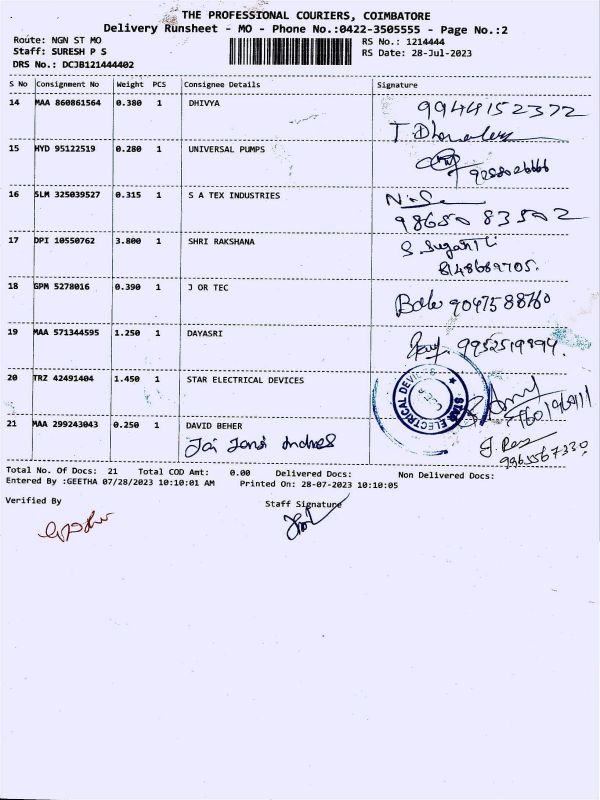 THE PROFESSIONAL COURIERS, COIMBATORE
Delivery Runsheet - MO - Phone No.:0422-3505555 - Page No.:2
Route: NGN ST MO
RS No.: 1214444
Staff: SURESH P S
RS Date: 28-Jul-2023
DRS No.: DCJB121444402
S No Consignment No Weight PCS Consignee Details Signature
14 MAA 860861564 0.380 1 DHIVYA 9944152372
15 HYD 95122519 0.280 1 UNIVERSAL PUMPS
16 SLM 325039527 0.315 1 S A TEX INDUSTRIES
9865083502
17 DPI 10550762 3.800 1 SHRI RAKSHANA
8148689705.
18 GPM 5278016 0.390 1 J OR TEC
19 MAA 571344595 1.250 1 DAYASRI
9952519894.
20 TRZ 42491404 1.450 1 STAR ELECTRICAL DEVICES
STAR ELECTRICAL DEVICES
21 MAA 299243043 0.250 1 DAVID BEHER
9965567330
Total No. Of Docs: 21 Total COD Amt: 0.00 Delivered Docs: Non Delivered Docs:
Entered By :GEETHA 07/28/2023 10:10:01 AM Printed On: 28-07-2023 10:10:05
Verified By Staff Signature